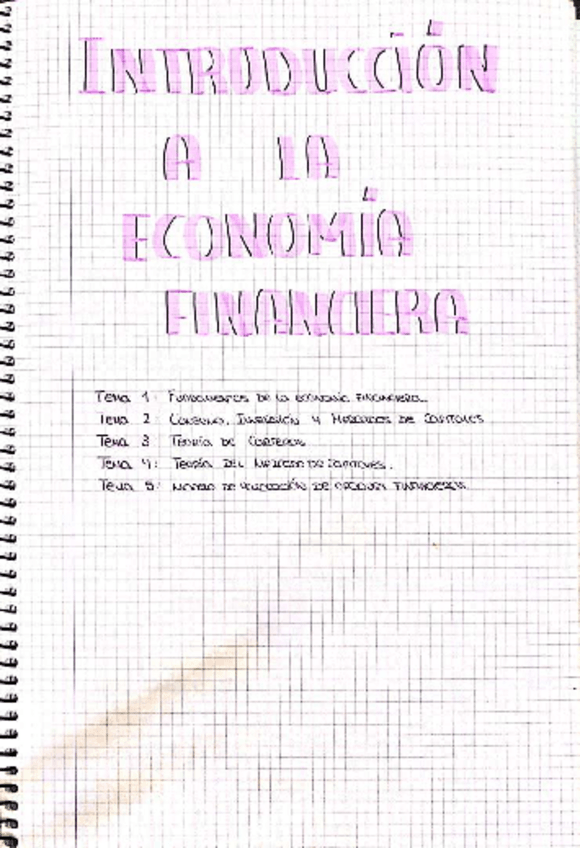 INTRODUCCIÓN
A LA
ECONOMÍA
FINANCIERA
Tema 1: Fundamentos de la economía financiera.
Tema 2: Consumo, Inversión y Mercados de Capitales
Tema 3: Teoría de Carteras
Tema 4: Teoría del Mercado de Capitales.
Tema 5: Modelo de valoración de opciones financieras